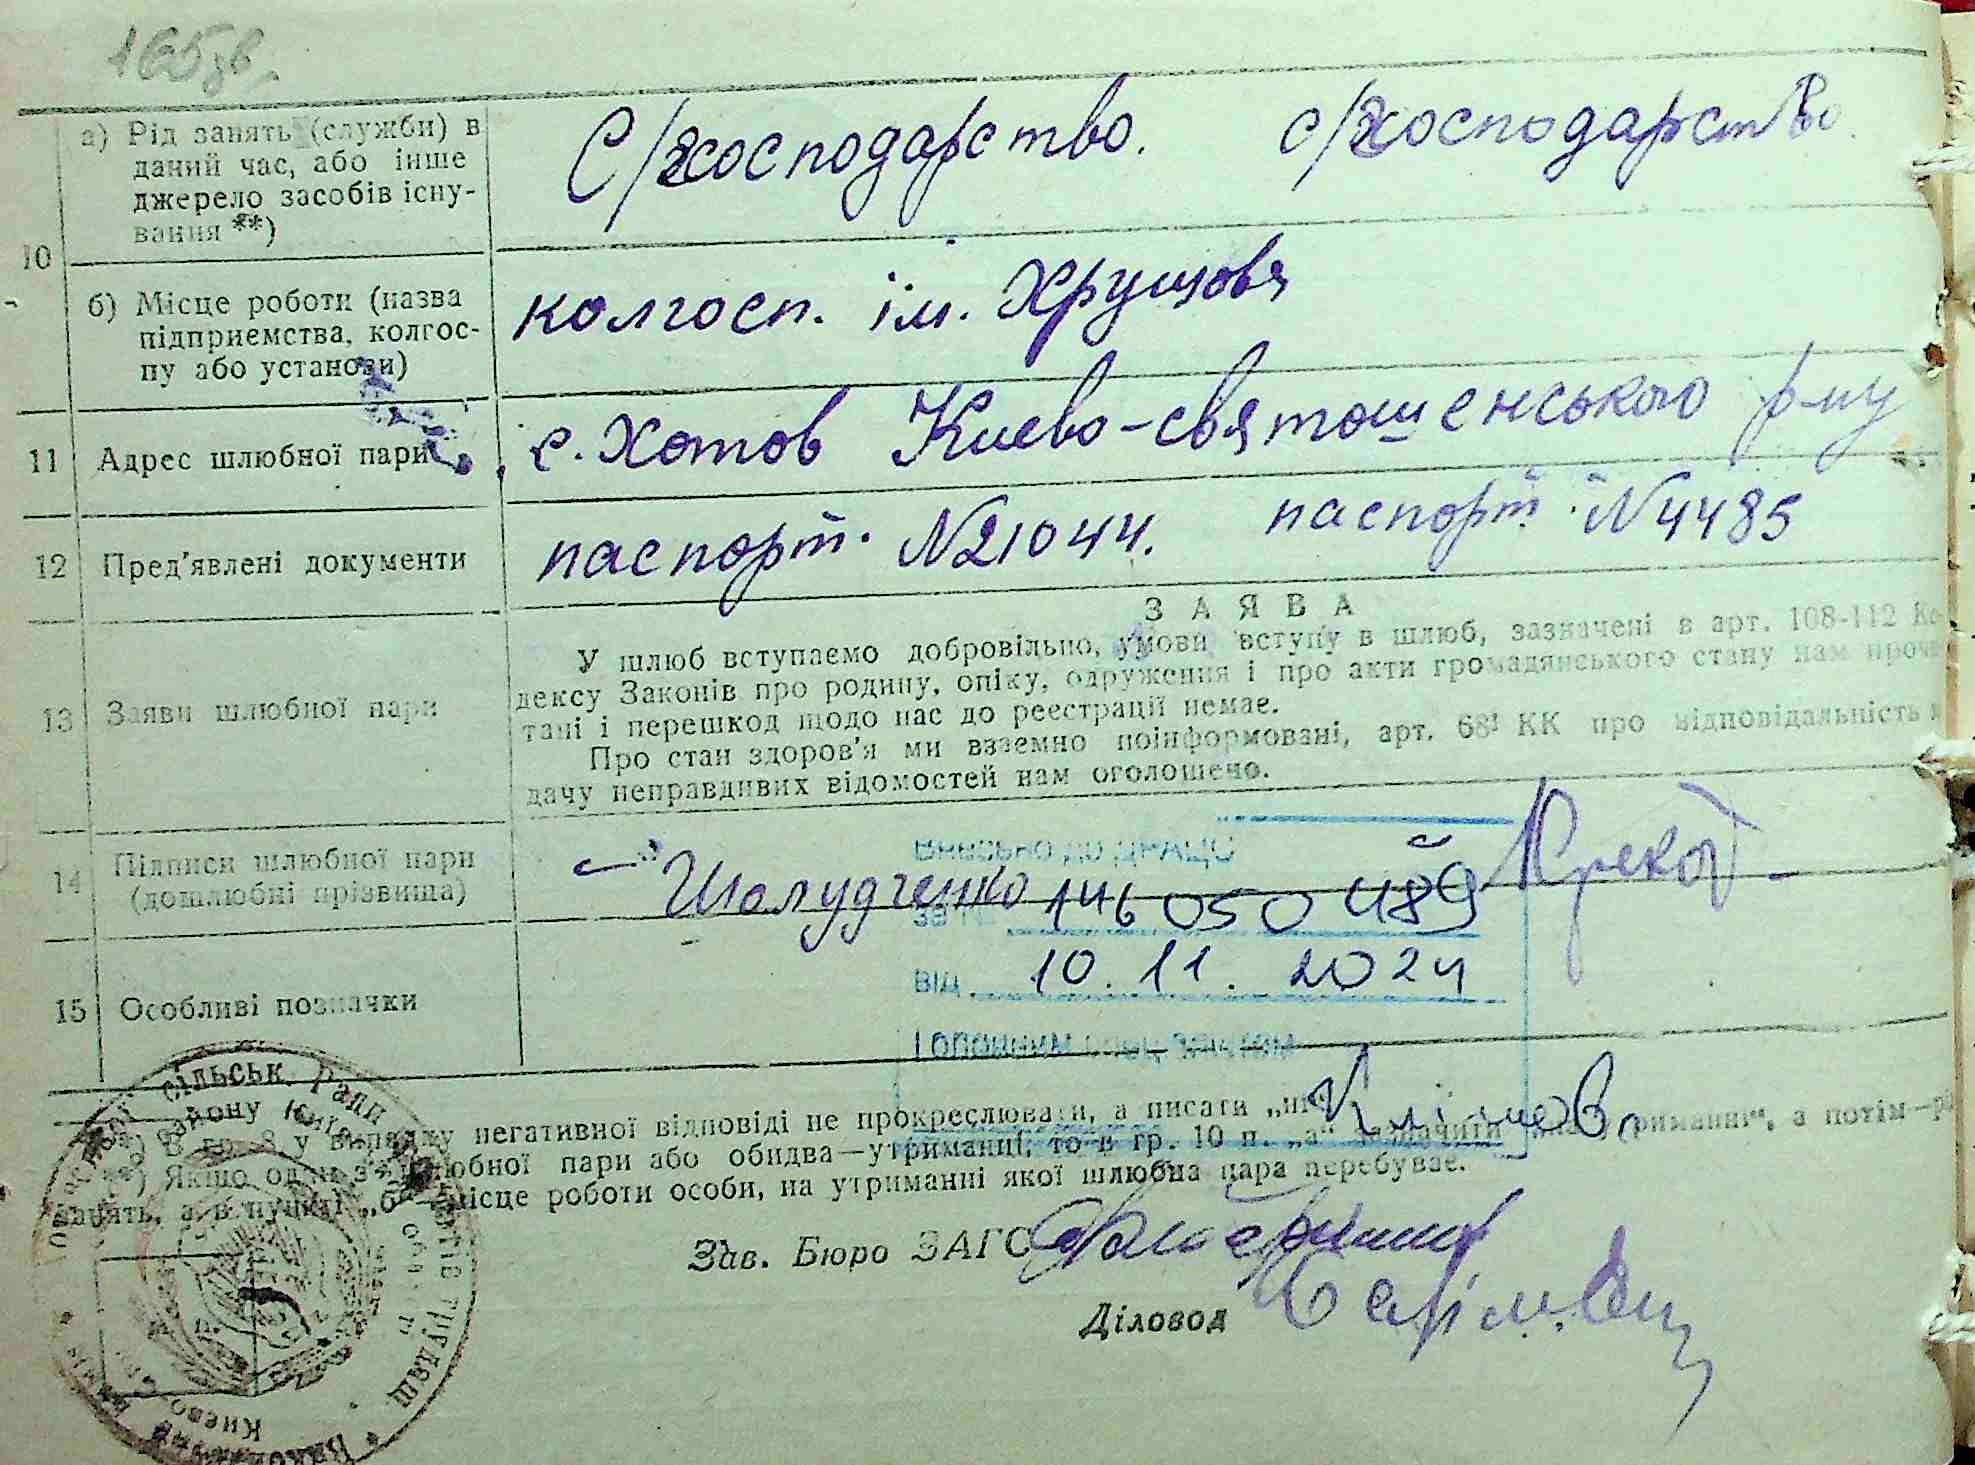 165зв.
10
а) Рід занять (служби) в
даний час, або інше
джерело засобів існу-
вання **)
С/господарство. с/господарство
б) Місце роботи (назва
підприємства, колгос-
пу або установи)
колгосп. ім. Хрущова
11 Адрес шлюбної пари с. Хотов Києво-святошенського р-ну
12 Пред'явлені документи паспорт. №21044. паспорт №4485
13 Заяви шлюбної пари
ЗАЯВА
У шлюб вступаємо добровільно, умови вступу в шлюб, зазначені в арт. 108-112 Ко-
дексу Законів про родину, опіку, одруження і про акти громадянського стану нам прочи-
тані і перешкод щодо нас до реєстрації немає.
Про стан здоров'я ми взаємно поінформовані, арт. 68¹ КК про відповідальність
дачу неправдивих відомостей нам оголошено.
14 Підписи шлюбної пари
(дошлюбні прізвища)
Шолудченко
Внесено до ДРАЦС
за № 146 050 489
від 10.11.2024
15 Особливі позначки
*) В гр. 8 у випадку негативної відповіді не прокреслювати, а писати „ні“
**) Якщо один з шлюбної пари або обидва—утриманці, то в гр. 10 п. „а“ зазначити „на утриманні“, а потім—рід
занять, а в пункті „б“—місце роботи особи, на утриманні якої шлюбна пара перебуває.
Зав. Бюро ЗАГС
Діловод